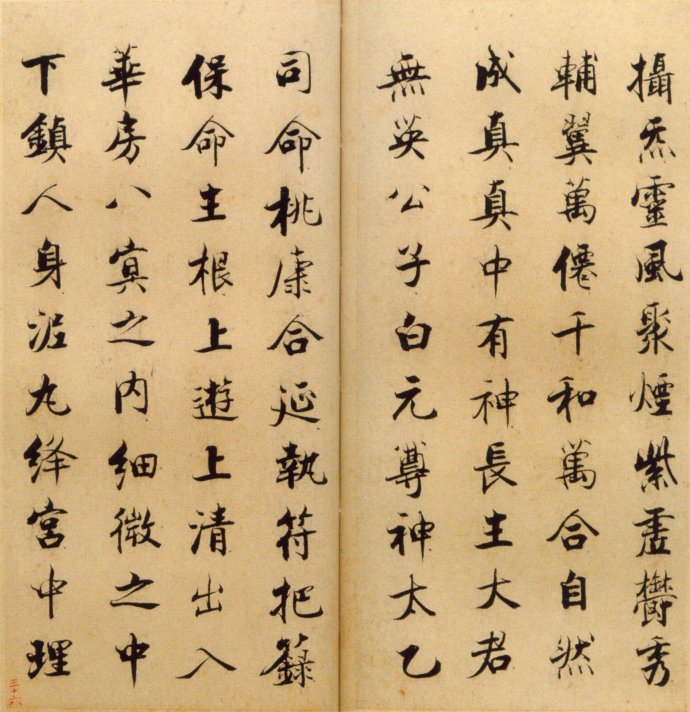 攝炁靈風聚煙紫虛欝秀
輔翼萬僊千和萬合自然
成真真中有神長生大君
無英公子白元尊神太乙
司命桃康合延執符把籙
保命生根上遊上清出入
華房八冥之内細微之中
下鎮人身泥丸絳宮中理
三十六